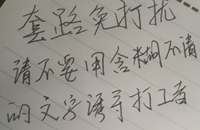 套路免打扰
请不要用含糊不清
的文字诱导打工者